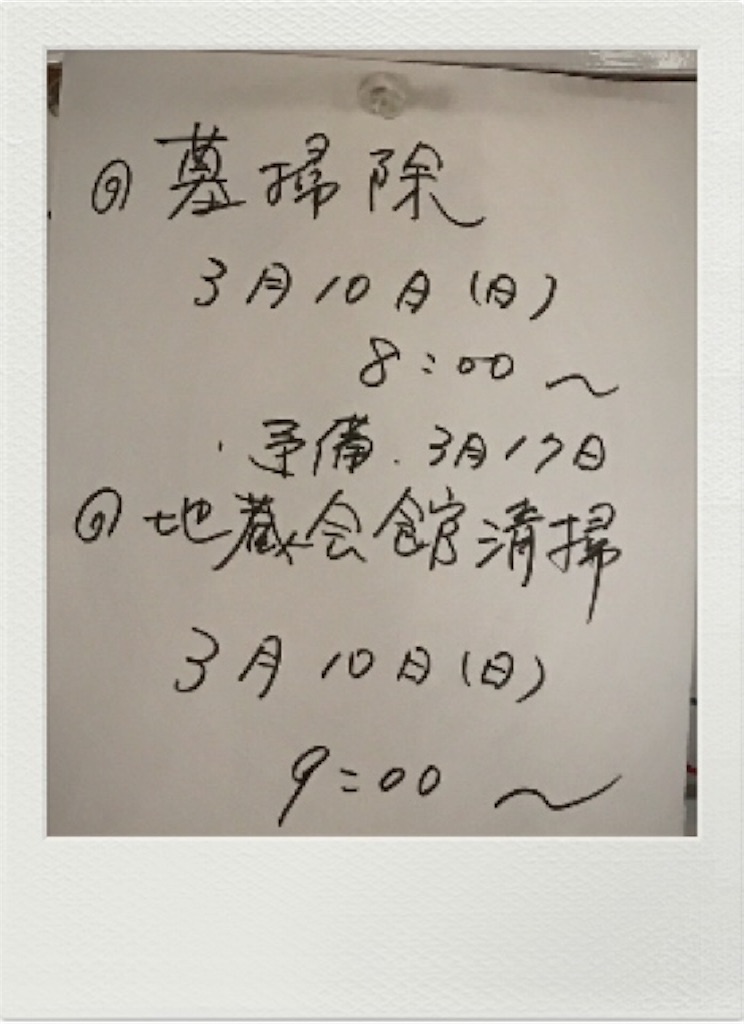 ◎ 墓掃除
3月10日(日)
8:00〜
・予備.3月17日
◎ 地蔵会館清掃
3月10日(日)
9:00〜